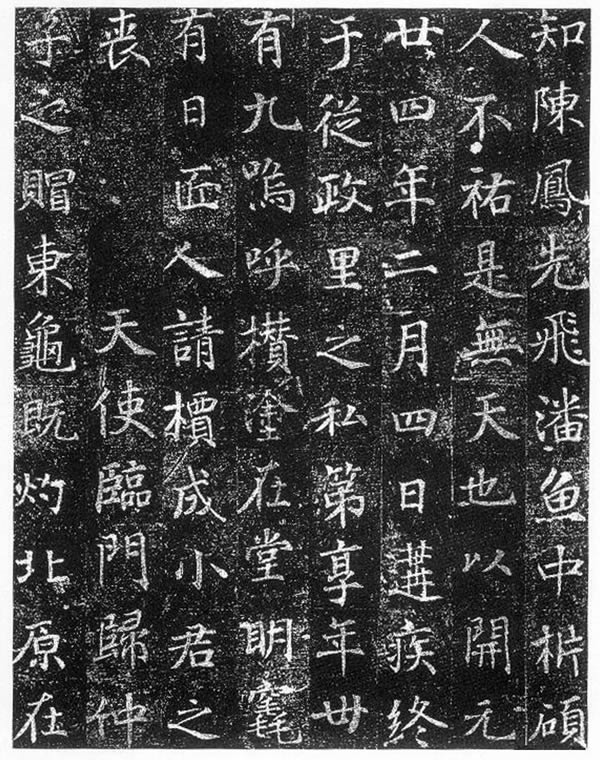 知陳鳳先飛潘魚中枿碩
人不祐是無天也以開元
廿四年二月四日遘疾終
于從政里之私第享年卅
有九嗚呼攢塗在堂眀
有日匠人請檟成小君之
喪天使臨門歸仲
子之賵東龜既灼北原在